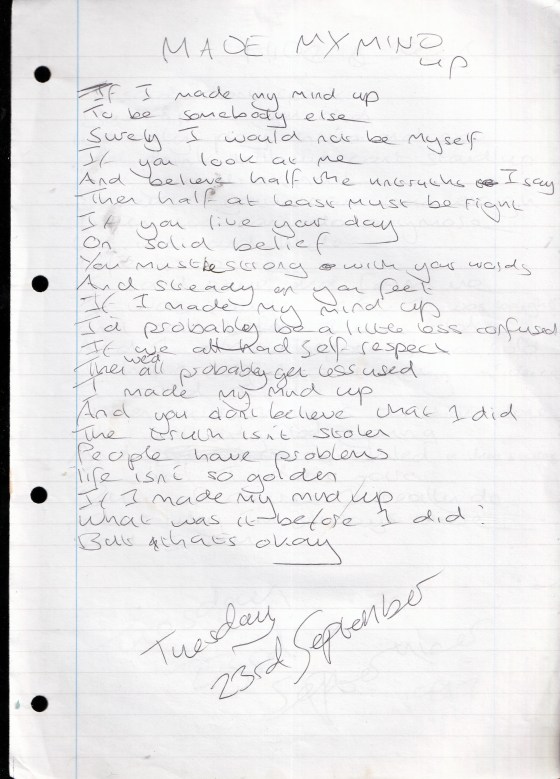 MADE MY MIND
up
If I made my mind up
To be somebody else
Surely I would not be myself
If you look at me
And believe half the untruths I say
Then half at least must be right
If you live your day
On solid belief
You must be strong with your words
And steady on your feet
If I made my mind up
I'd probably be a little less confused
If we all had self respect
Then we'd all probably get less used
I made my mind up
And you don't believe what I did
The truth isn't stolen
People have problems
life isn't so golden
If I made my mind up
What was it before I did?
But thats okay
Tuesday
23rd September